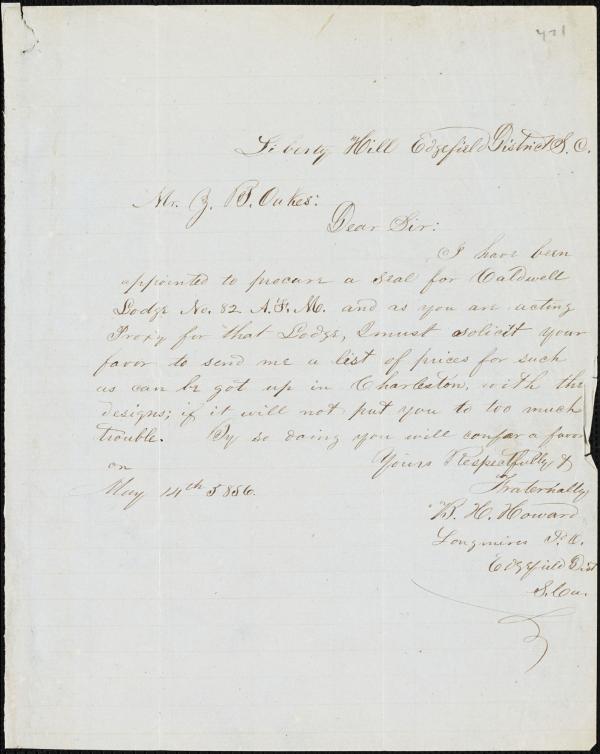 421
Liberty Hill Edgefield District S. C.
Mr. Z. B. Oakes:
Dear Sir:
I have been
appointed to procure a seal for Caldwell
Lodge No. 82 A.F.M. and as you are acting
Proxy for that Lodge, I must solicit your
favor to send me a list of prices for such
as can be got up in Charleston, with the
designs; if it will not put you to too much
trouble. By so doing you will confar a favor
on
Yours Respectfully &
May 14th 1856.
Fraternally
B. H. Howard
Longmires P. O.
Edgefield Dist
S. Ca.